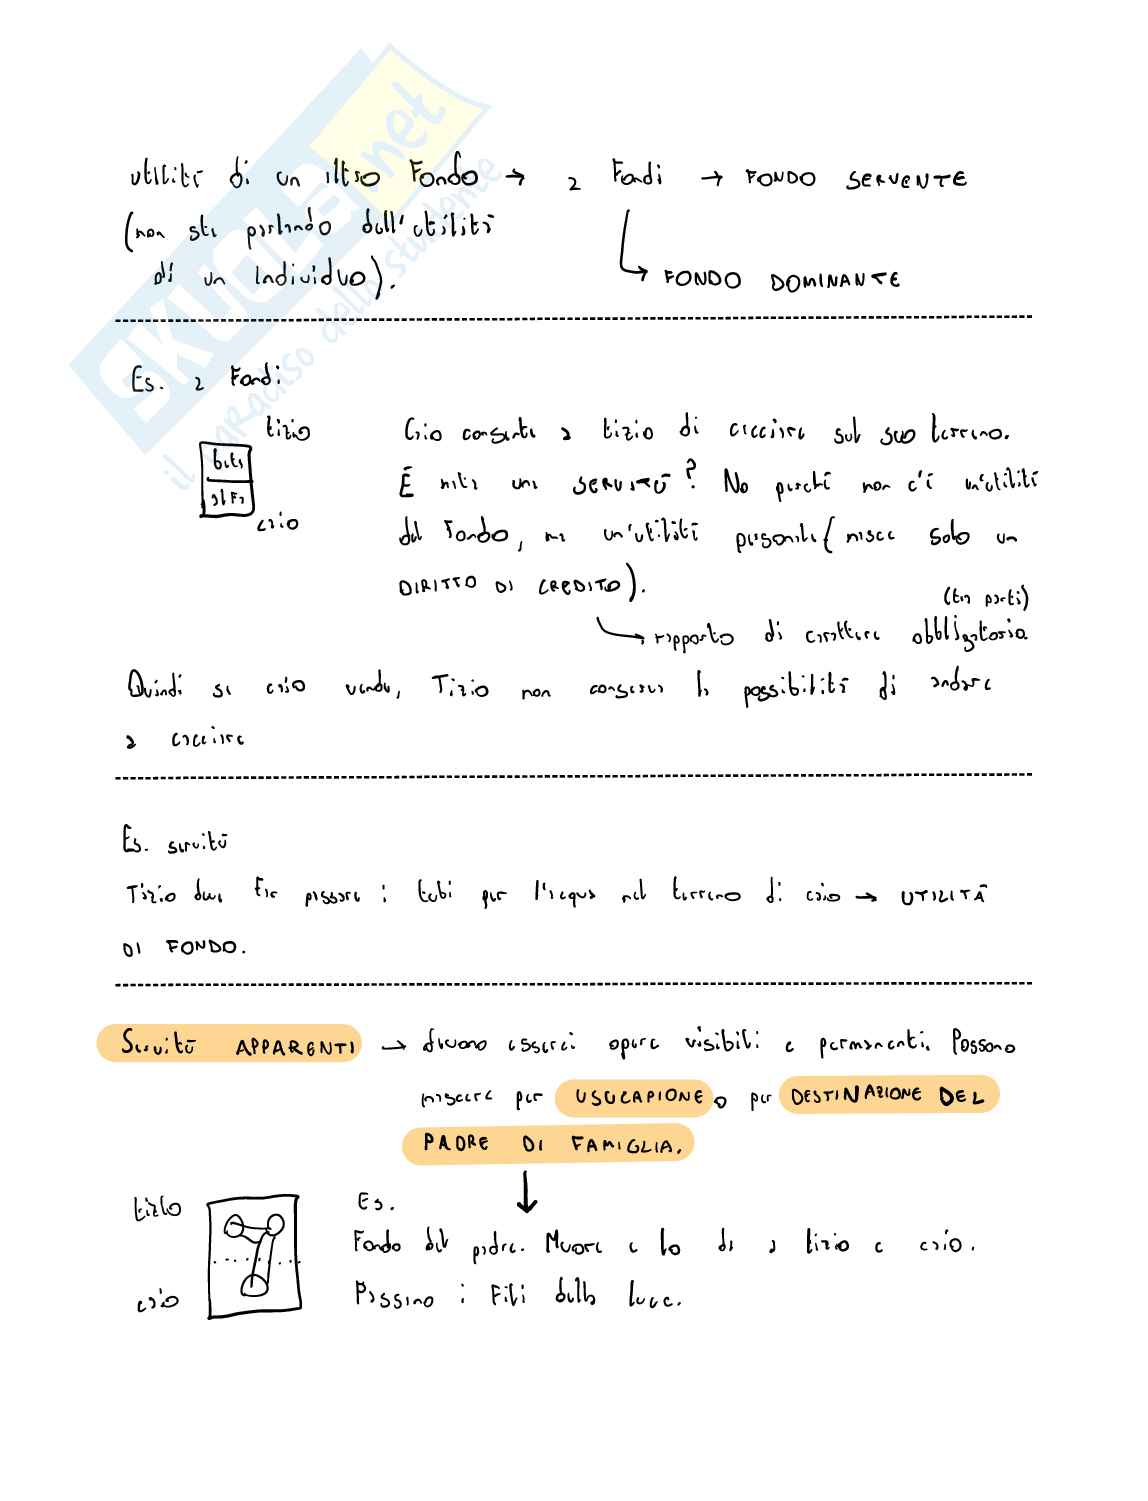 utilità di un altro Fondo → 2 Fondi → FONDO SERVENTE
(non sta parlando dell'utilità
di un individuo).
→ FONDO DOMINANTE
Es. 2 Fondi
tizio
beta
alfa
caio
Caio consente a tizio di cacciare sul suo terreno.
È nata una SERVITÙ? No perché non c'è un'utilità
del Fondo, ma un'utilità personale (nasce solo un
DIRITTO DI CREDITO).
(tra parti)
→ rapporto di carattere obbligatorio
Quindi se caio vende, Tizio non conserva la possibilità di andare
a cacciare
Es. servitù
Tizio deve far passare i tubi per l'acqua nel terreno di caio → UTILITÀ
DI FONDO.
Servitù APPARENTI → devono esserci opere visibili e permanenti. Possono
nascere per USUCAPIONE o per DESTINAZIONE DEL
PADRE DI FAMIGLIA.
tizio
caio
Es.
Fondo del padre. Muore e lo dà a tizio e caio.
Passano i fili della luce.
SKUOLA.net
il paradiso dello studente